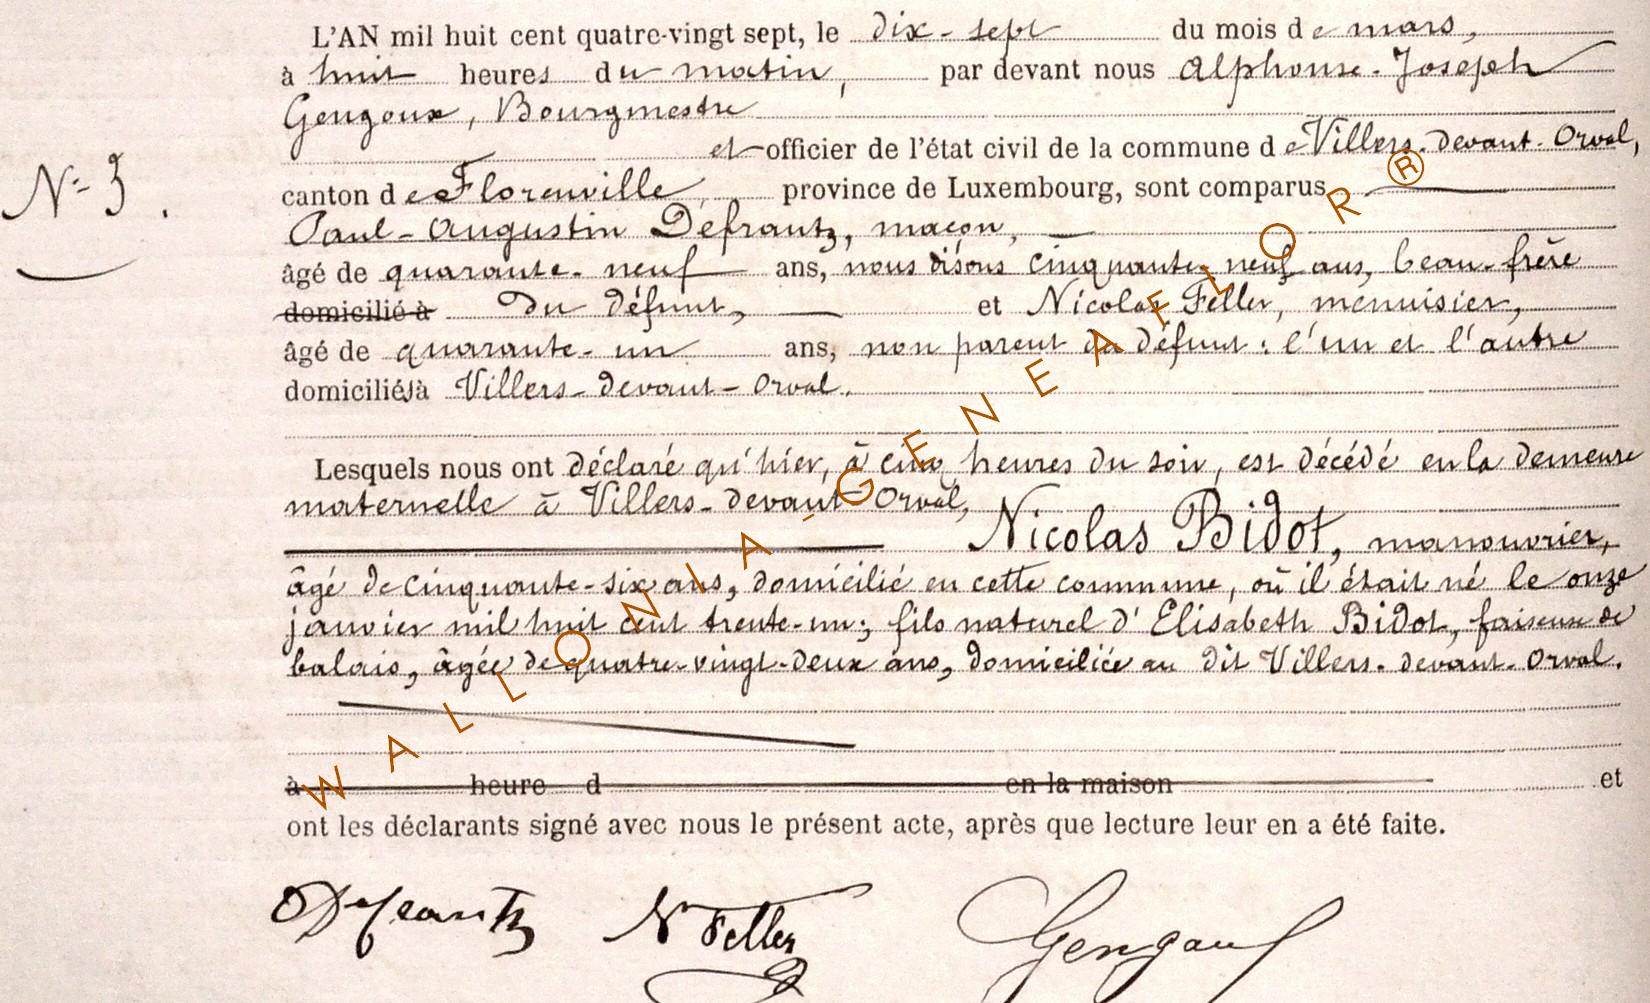 L'AN mil huit cent quatre-vingt sept, le dix-sept du mois de mars,
à huit heures du matin, par devant nous Alphonse-Joseph
Gengoux, Bourgmestre
et officier de l'état civil de la commune de Villers-devant-Orval,
N° 3.
canton de Florenville province de Luxembourg, sont comparus
Paul-Augustin Défrantz, maçon,
âgé de quarante-neuf ans, nous disons cinquante-neuf ans, beau-frère
domicilié à du défunt, et Nicolas Feller, menuisier,
âgé de quarante-un ans, non parent du défunt : l'un et l'autre
domiciliés à Villers-devant-Orval.
Lesquels nous ont déclaré qu'hier, à cinq heures du soir, est décédé en la demeure
maternelle à Villers-devant-Orval,
Nicolas Bidot, manouvrier,
âgé de cinquante-six ans, domicilié en cette commune, où il était né le onze
janvier mil huit cent trente-un; fils naturel d'Elisabeth Bidot, faiseuse de
balais, âgée de quatre-vingt-deux ans, domiciliée au dit Villers-devant-Orval.
à heure d en la maison et
ont les déclarants signé avec nous le présent acte, après que lecture leur en a été faite.
Defrantz N Feller Gengoux
WALLONIA-GENEAFLOR®